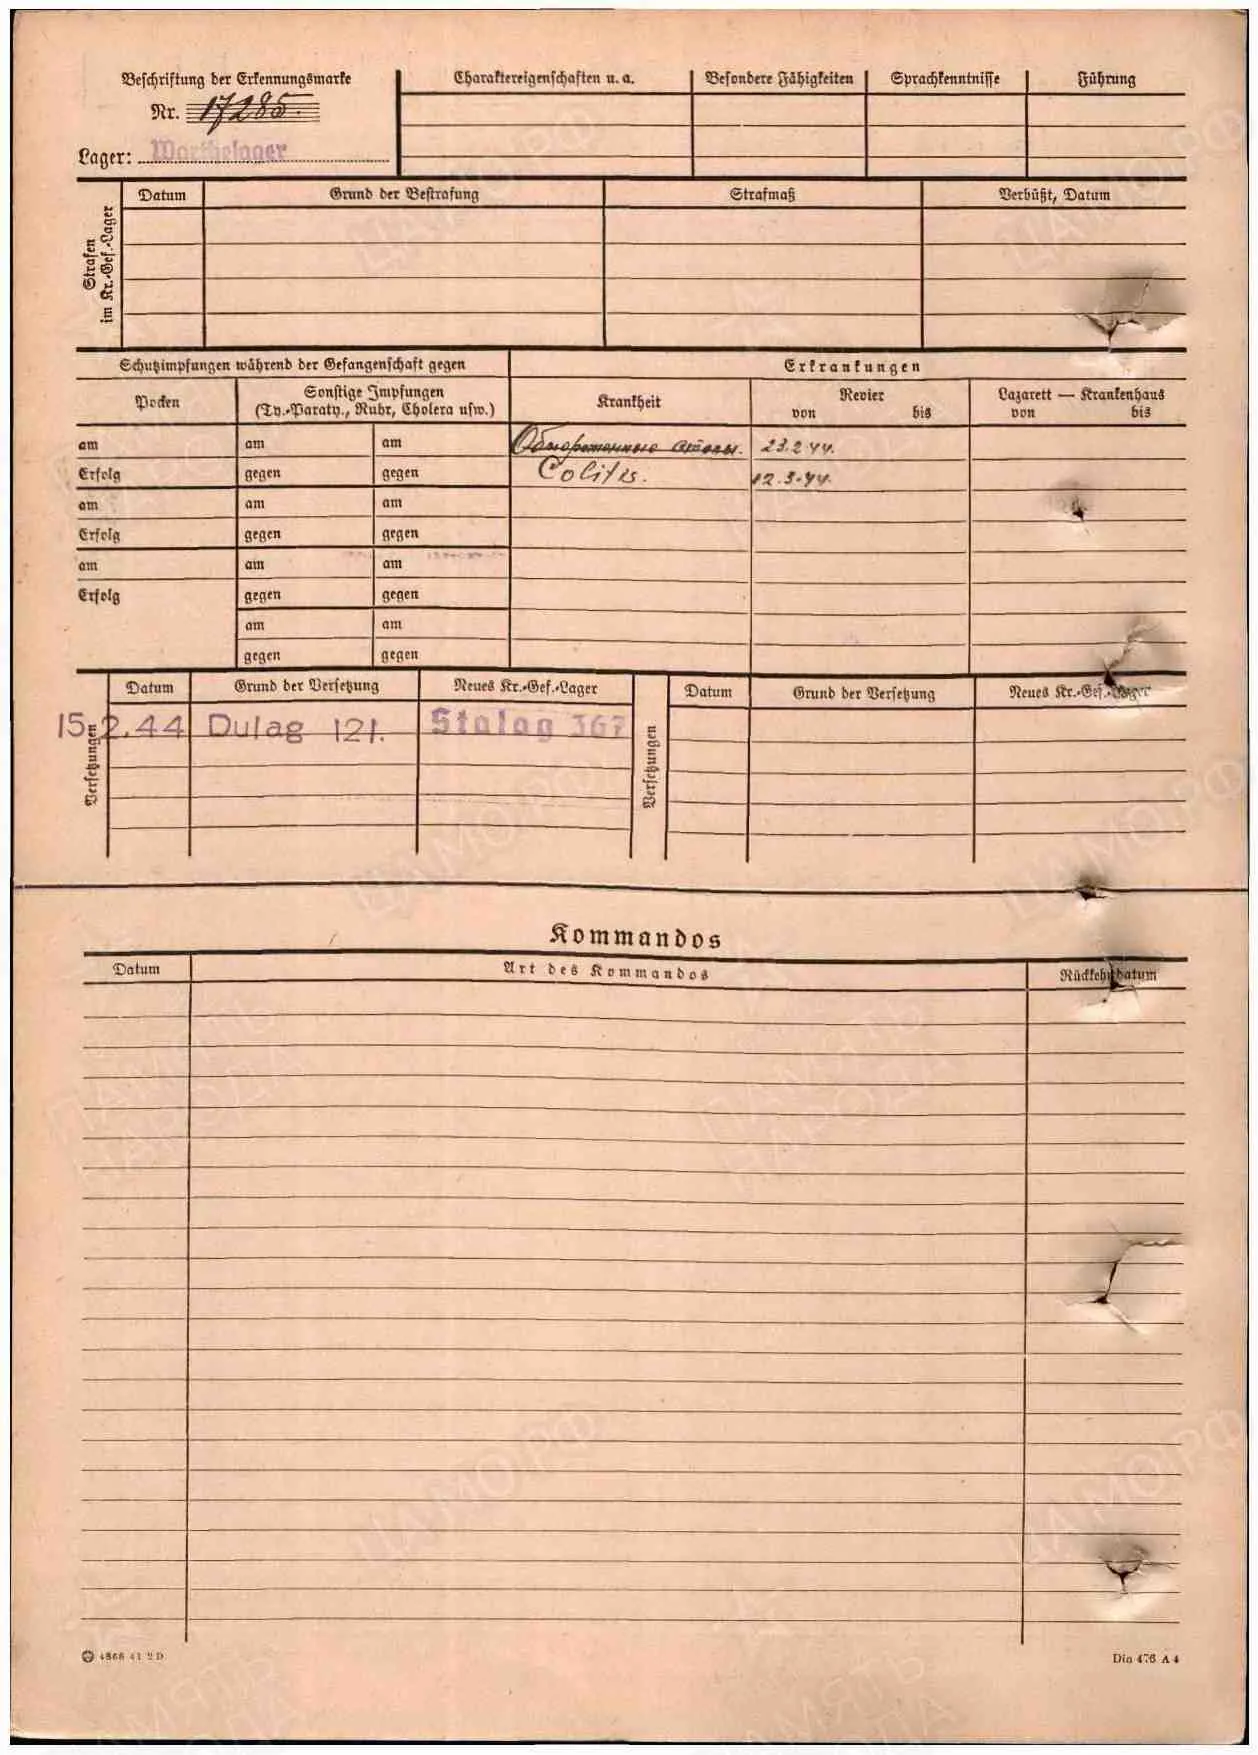 Beschriftung der Erkennungsmarke
Nr. 17285.
Lager: Warthelager
Charaktereigenschaften u. a.
Besondere Fähigkeiten
Sprachkenntnisse
Führung
Strafen im Kr.-Gef.-Lager
Datum
Grund der Bestrafung
Strafmaß
Verbüßt, Datum
Schutzimpfungen während der Gefangenschaft gegen
Erkrankungen
Pocken
Sonstige Impfungen
(Ty.-Paraty., Ruhr, Cholera usw.)
Krankheit
Revier
von bis
Lazarett — Krankenhaus
von bis
am am am
Обмороженные стопы. 23.2.44.
Erfolg gegen gegen
Colitis. 12.3.44.
am am am
Erfolg gegen gegen
am am am
Erfolg gegen gegen
am am
gegen gegen
Versetzungen
Datum Grund der Versetzung Neues Kr.-Gef.-Lager
15.2.44 Dulag 121. Stalag 367
Versetzungen
Datum Grund der Versetzung Neues Kr.-Gef.-Lager
Kommandos
Datum Art des Kommandos Rückkehrdatum
4866 41 2 D
Din 476 A 4
ЦАМО.РФ
ПАМЯТЬ
НАРОДА